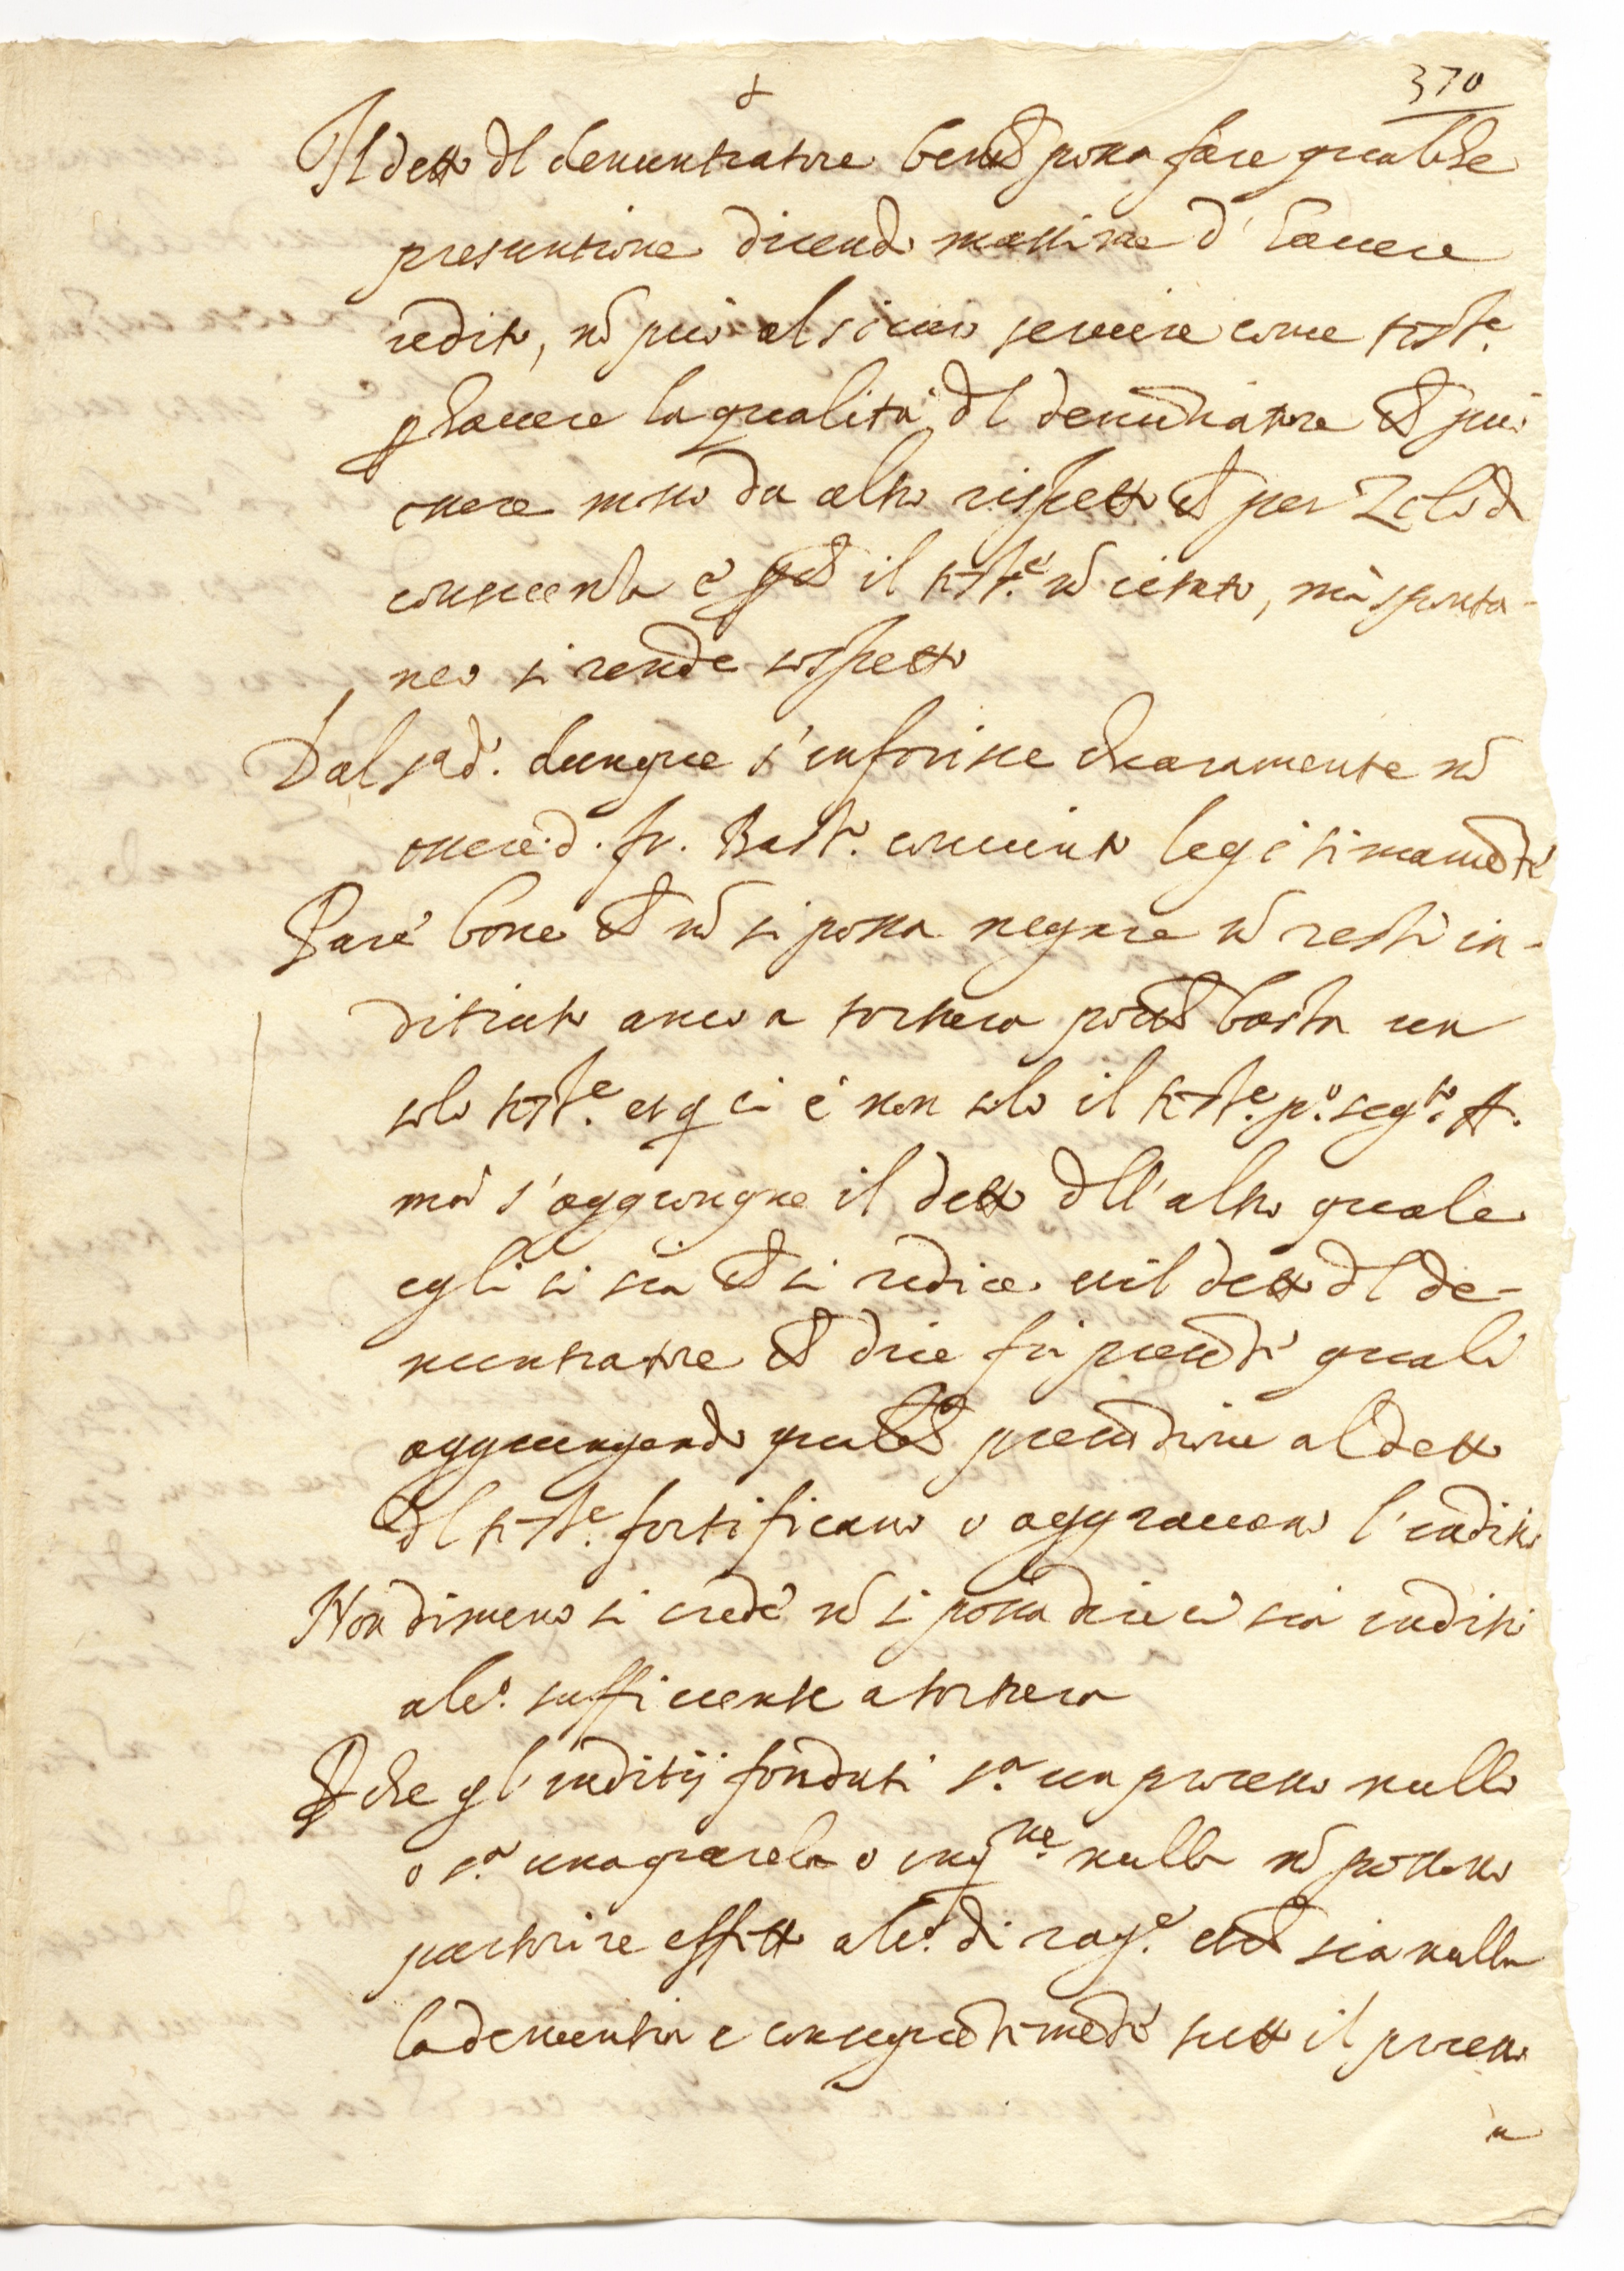 370
Il detto dl denuntiatore benche possa fare qualche
presuntione dicendo massime d'hauere
udito, nõ può al sicuro seruire come teste
p hauere la qualità dl denũtiatore che può
essere mosso da altro rispetto che per Zelo d
conscienza e pche il teste nõ citato, mà sponta-
neo si rende sospetto
Dal sad.o dunque s'inferisce chiaramente nõ
essere d. fr. Batt.a conuinto legitimamẽte
Pare bene che nõ si possa negare nõ resti in-
ditiato anco a tortura poiche basta un
solo teste et q ci è non solo il teste p.o seg.to A.
mà s'aggiongne il detto dll'altro quale
egli si sia che si redice nel detto dl de-
nuntiatore che dice fu presẽte quali
aggiungendo qualche presũtione al detto
dl teste fortificano o aggrauano l'inditio
Nondimeno si crede nõ si possa dire ci sia inditio
alc.o sufficiente a tortura
Pche gl'inditij fondati s.a un processo nullo
o s.a una querela o inq.ne nulla nõ possono
partorire effetto alc.o di rag.e che sia nulla
la denuntia e consequẽtemẽte tutto il processo